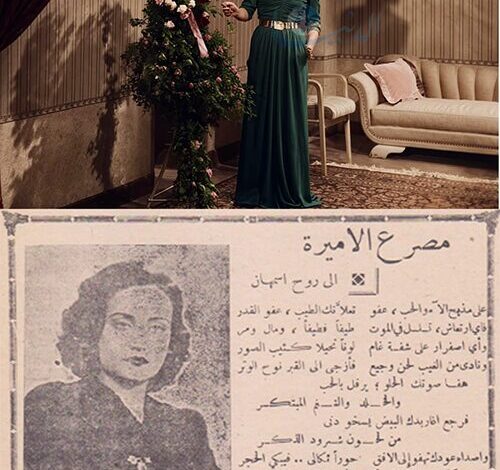 مصرع الاميرة
الى روح اسمهان
على مذبح الآه والحب، عفو تعلاتك الطيب، عفو القدر
فاي ارتعاش، تسلل في الموت طيفاً فطيفاً، ومال ومر
وأي اصفرار على شفة غام لوناً نحيلا كئيب الصور
ونادى من الغيب لحن وجيع فأزجى الى القبر فوح الوتر
هفا صوتك الحلو؛ يرفل بالحب
والخلد والنغم المبتكر
فرجع أغاريدك البيض يسخو دنى
من لحون شرود الذكر
واصداء عودك تهفو الى الافق حوراً ثكالى .. فيبكي الحجر